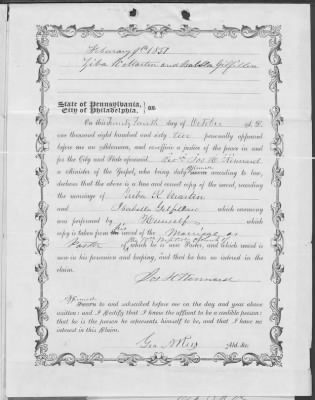 February 9th 1857
Ziba K Martin and Isabella Gilfillan
State of Pennsylvania,
City of Philadelphia. ss
On this Twenty Fourth day of October A. D.
one thousand eight hundred and sixty five personally appeared
before me an Alderman, and ex-officio a justice of the peace in and
for the City and State aforesaid Revd Jos H Kennard
a Minister of the Gospel, who being duly affirmed according to law,
declares that the above is a true and correct copy of the record, recording
the marriage of Ziba K Martin
and Isabella Gilfillan which ceremony
was performed by Himself
copy is taken from his record of the Marriage as
Pastor of which he is now Pastor, and which record is
now in his possession and keeping, and that he has no interest in the
claim.
Jos H Kennard
Affirmed
Sworn to and subscribed before me on the day and year above
written: and I certify that I know the affiant to be a credible person:
that he is the person he represents himself to be, and that I have no
interest in this Claim.
Ald. &c.